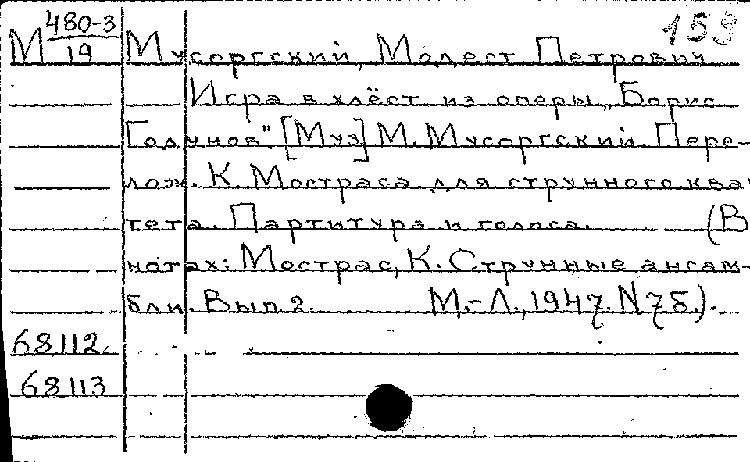 159
М 480-3/19 Мусоргский, Модест Петрович
Игра в хлёст из оперы „Борис
Годунов" [Муз] М. Мусоргский. Пере-
лож. К. Мостраса для струнного ква
тета. Партитура и голоса. (В
нотах: Мострас, К. Струнные ансам-
бли. Вып 2. М.-Л., 1947. N 7б.).
68112.
68113